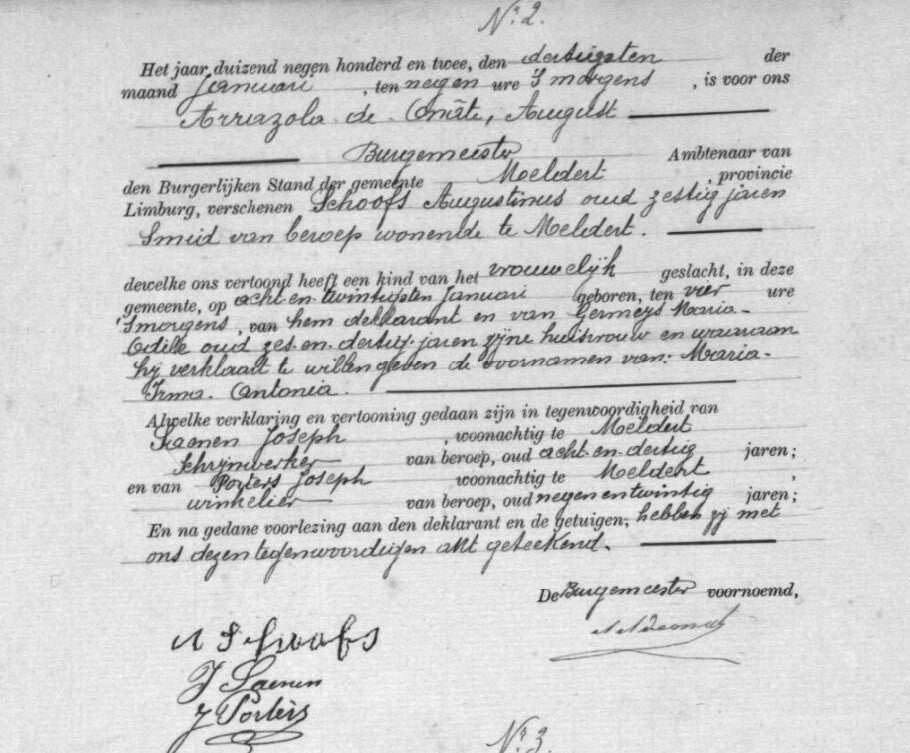 N.º 2.
Het jaar duizend negen honderd en twee, den dertigsten der
maand Januari, ten negen ure 'S morgens, is voor ons
Arrazola de Oñate, August
Burgemeester Ambtenaar van
den Burgerlijken Stand der gemeente Meldert, provincie
Limburg, verschenen Schoofs Augustinus oud zestig jaren
Smid van beroep wonende te Meldert.
dewelke ons vertoond heeft een kind van het vrouwelijk geslacht, in deze
gemeente, op acht-en-twintigsten Januari geboren, ten vier ure
'Smorgens, van hem deklarant en van Germeys Maria-
Odile oud zes-en-dertig jaren zijne huisvrouw en waaraan
hij verklaart te willen geven de voornamen van: Maria-
Irma-Antonia.
Alwelke verklaring en vertooning gedaan zijn in tegenwoordigheid van
Saenen Joseph, woonachtig te Meldert
Schrijnwerker van beroep, oud acht-en-dertig jaren;
en van Porters Joseph woonachtig te Meldert,
winkelier van beroep, oud negenentwintig jaren;
En na gedane voorlezing aan den deklarant en de getuigen, hebben zij met
ons dezen tegenwoordigen akt geteekend.
De Burgemeester voornoemd,
A Schoofs
J Saenen
J Porters
N.º 3.